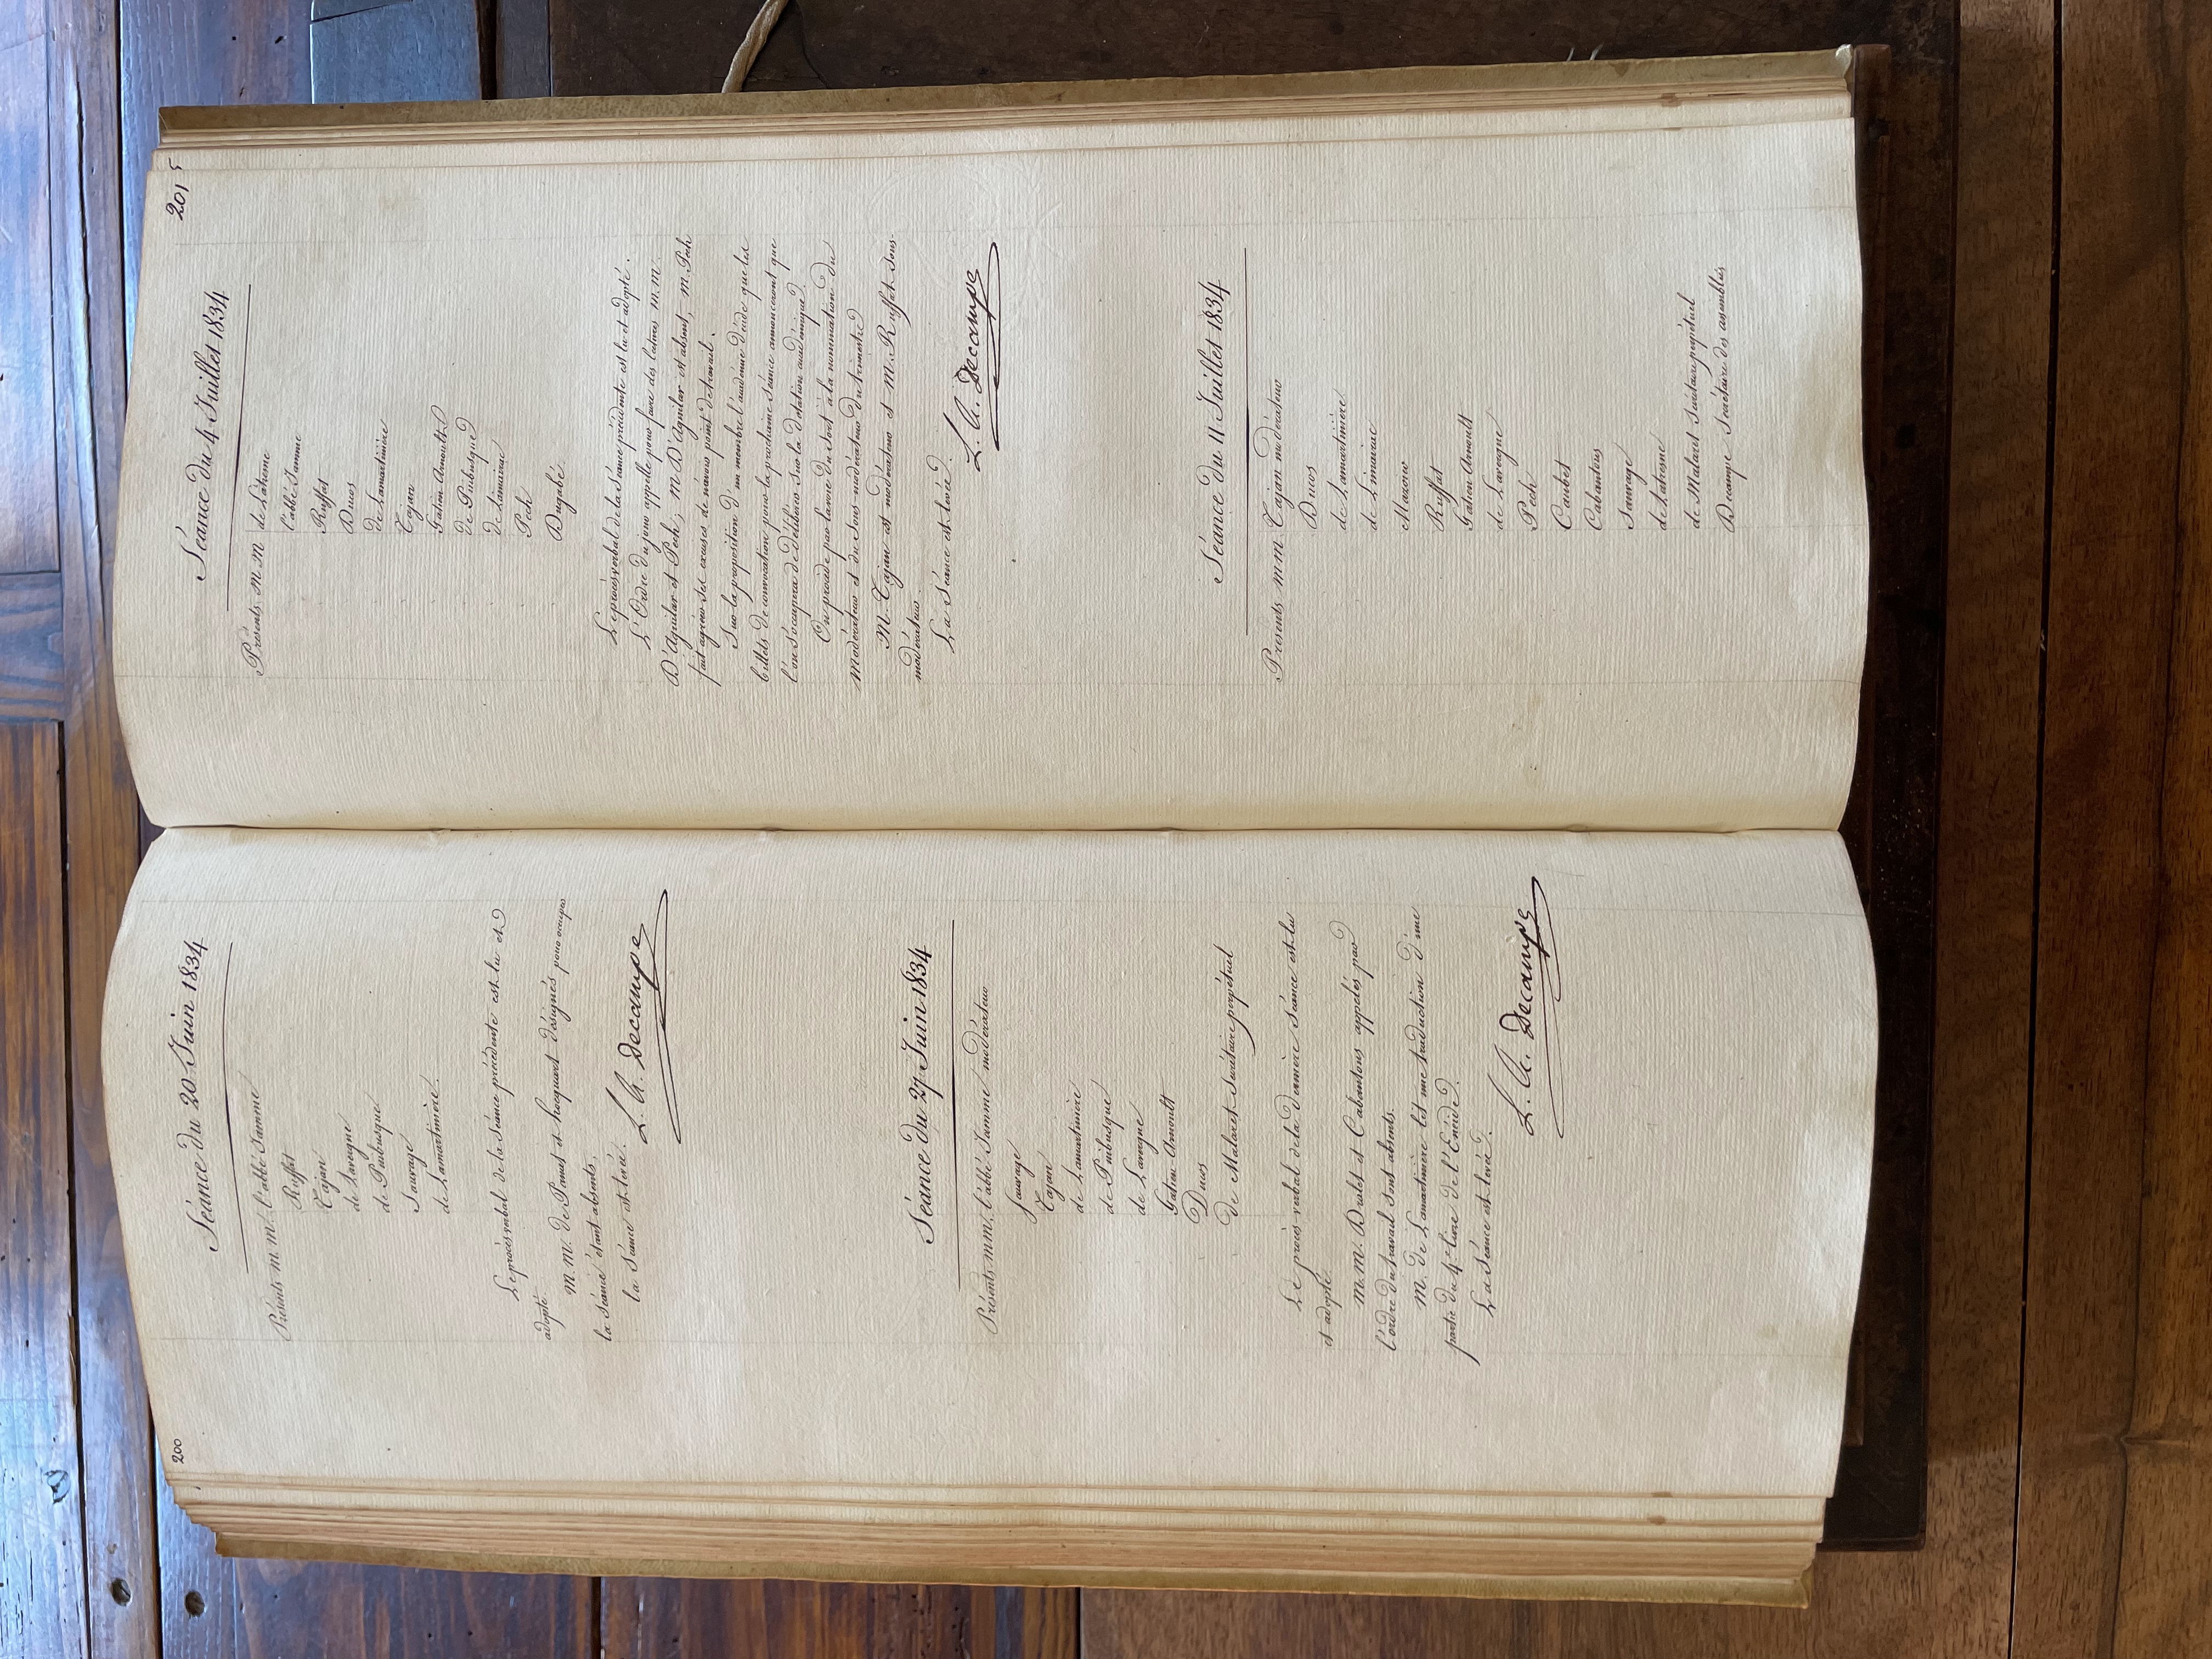 200
Séance du 20 Juin 1834
Présents m. m. l'abbé Jamme
Ruffat
Tajan
de Lavergne
de Puibusque
Sauvage
de Lamartinière.
Le procès verbal de la Séance précédente est lu et
adopté.
M. M. de Panat et hocquart désignés pour occuper
la séance étant absents,
la Séance est levée.
L. A. Decampe
Séance du 27 Juin 1834
Présents m m. l'abbé Jamme modérateur
Sauvage
Tajan
de Lamartinière
de Puibusque
de Lavergne
Gatien-Arnoult
Ducos
De Malaret Secrétaire perpétuel
Le procès verbal de la dernière Séance est lu
et adopté.
M. M. Dralet et Cabantous appelés par
l'ordre du travail sont absents.
M. de Lamartinière lit une traduction d'une
partie du 4e livre de l'Enéide.
La Séance est levée.
L. A. Decampe
201
Séance du 4 Juillet 1834
Présents m m de Latresne
l'abbé Jamme
Ruffat
Ducos
de Lamartinière
Tajan
Gatien-Arnoult
de Puibusque
de Limairac
Pech
Dugabé
Le procès verbal de la Séance précédente est lu et adopté.
L'Ordre du jour appelle pour faire des lectures m. m.
D'Aguilar et Pech; m. D'Aguilar est absent, m. Pech
fait agréer ses excuses de n'avoir point de travail.
Sur la proposition d'un membre l'académie décide que les
billets de convocation pour la prochaine Séance annonceront que
l'on s'occupera de délibérer sur la dotation académique.
On procède par la voie du Sort à la nomination du
Modérateur et du Sous-modérateur du trimestre
M. Tajan est modérateur et m. Ruffat sous-
modérateur.
La Séance est levée.
L. A. Decampe
Séance du 11 Juillet 1834
Présents m m. Tajan modérateur
Ducos
de Lamartinière
de Limairac
Mazoïer
Ruffat
Gatien Arnoult
de Lavergne
Pech
Caubet
Cabantous
Sauvage
de Latresne
de Malaret Secrétaire perpétuel
Decampe Secrétaire des assemblées